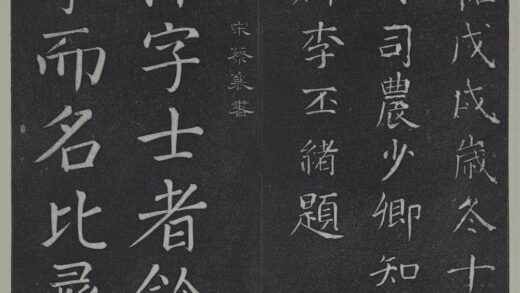 戊戌歲冬十
司農少卿知
李丕緒題
宋蔡襄書
字士者
而名比尋